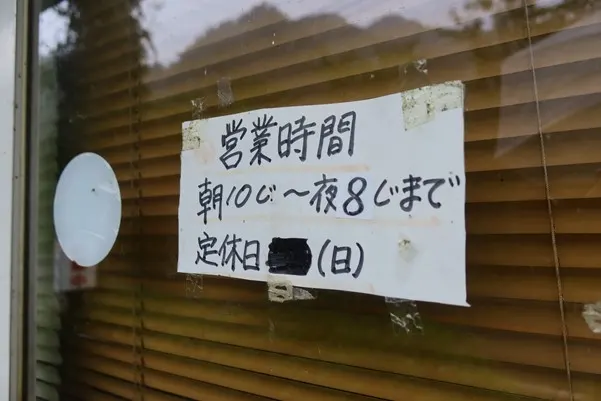 営業時間
朝10じ～夜8じまで
定休日 (日)